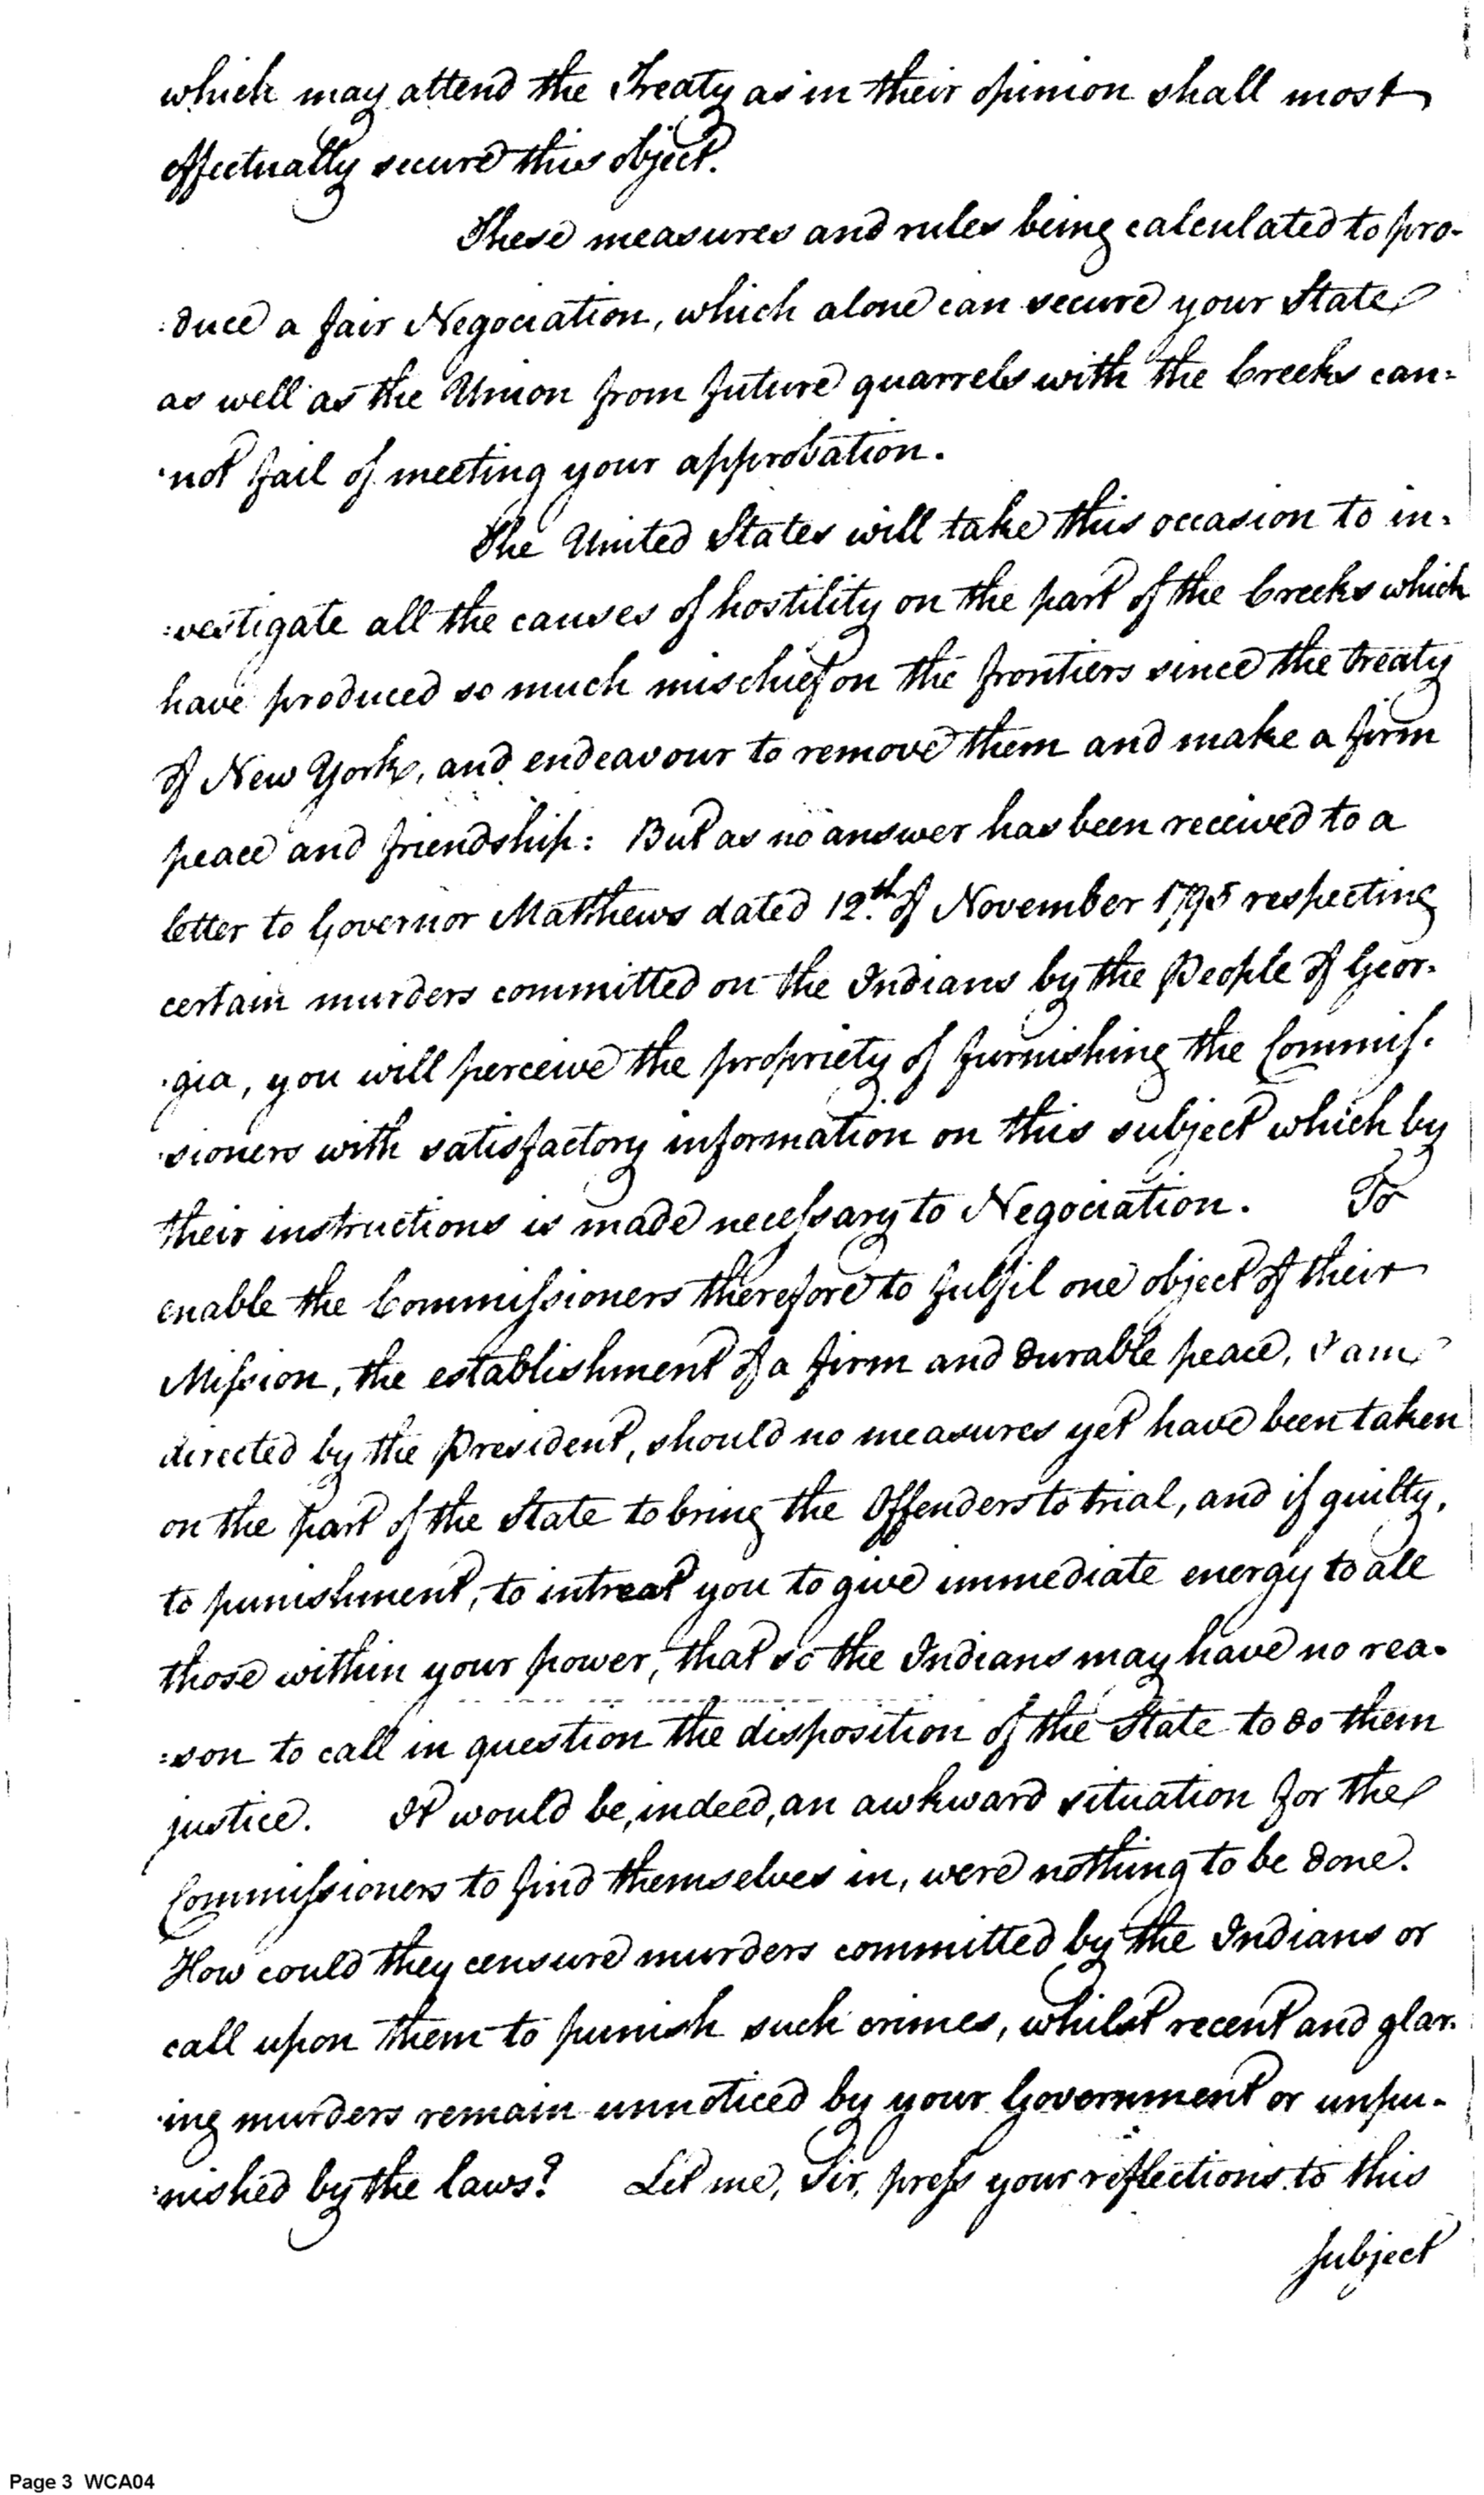 which may attend the Treaty as in their opinion shall most
effectually secure this object.
These measures and rules being calculated to pro-
:duce a fair Negociation, which alone can secure your State
as well as the Union from future quarrels with the Creeks can=
not fail of meeting your approbation.
The United States will take this occasion to in=
:vestigate all the causes of hostility on the part of the Creeks which
have produced so much mischief on the frontiers since the treaty
of New York, and endeavour to remove them and make a firm
peace and friendship: But as no answer has been received to a
letter to Governor Matthews dated 12.th of November 1795 respecting
certain murders committed on the Indians by the People of Geor-
gia, you will perceive the propriety of furnishing the Commis-
sioners with satisfactory information on this subject which by
their instructions is made necessary to Negociation. To
enable the Commissioners therefore to fulfil one object of their
Mission, the establishment of a firm and durable peace, I am
directed by the President, should no measures yet have been taken
on the part of the State to bring the Offenders to trial, and if guilty,
to punishment, to intreat you to give immediate energy to all
those within your power, that so the Indians may have no rea-
:son to call in question the disposition of the State to do them
justice. It would be, indeed, an awkward situation for the
Commissioners to find themselves in, were nothing to be done.
How could they censure murders committed by the Indians or
call upon them to punish such crimes, whilst recent and glar-
ing murders remain unnoticed by your Government or unpu-
:nished by the laws? Let me, Sir, press your reflections to this
subject
Page 3 WCA04